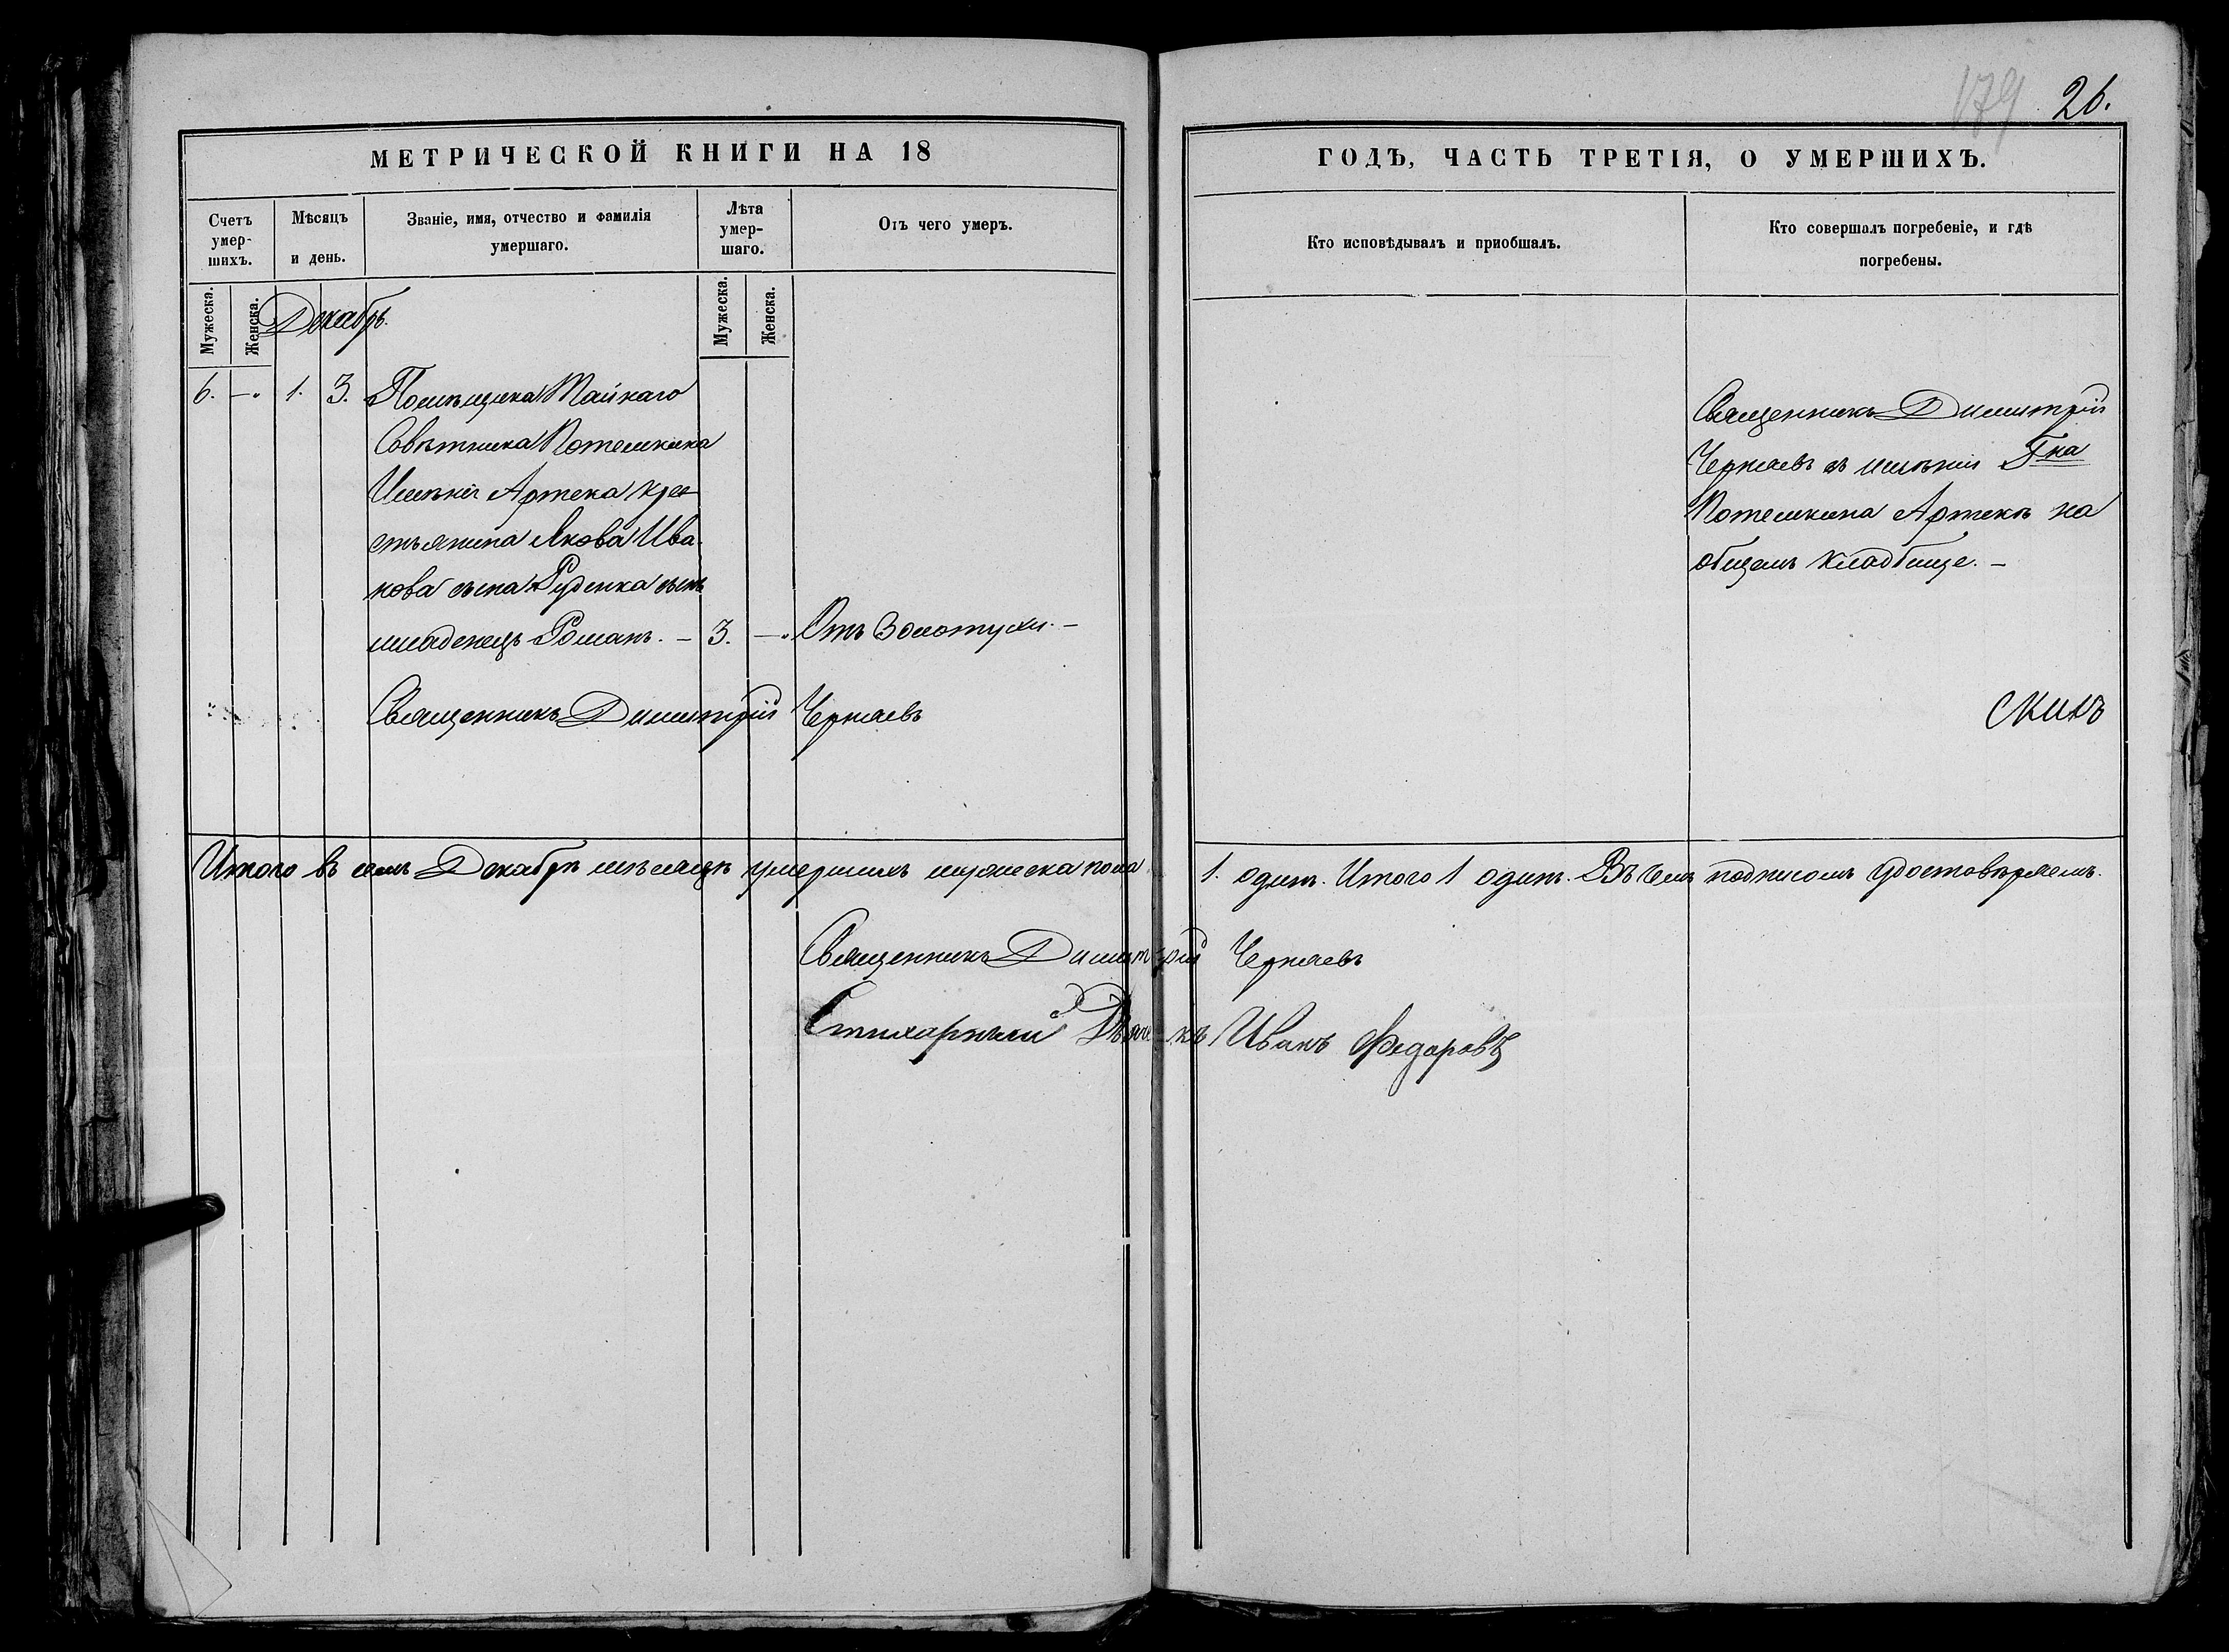 179 26.
МЕТРИЧЕСКОЙ КНИГИ НА 18
Счетъ умер-шихъ.
Мѣсяцъ и день.
Званіе, имя, отчество и фамилія умершаго.
Лѣта умер-шаго.
Отъ чего умеръ.
Мужеска.
Женска.
Мужеска.
Женска.
Декабрь.
6. — 1. 3. Помѣщика Тайнаго
Совѣтника Потемкина
Имѣнія Артека кре-
стьянина Якова Ива-
нова сына Руденка сынъ
младенецъ Романъ. — 3. — Отъ Золотухи. —
Священникъ Димитрій Черняевъ
Итого въ семъ Декабрѣ мѣсяцѣ умершихъ мужеска пола
Священникъ Димитрій Черняевъ
Стихарный Дьячекъ Иванъ Федоровъ
ГОДЪ, ЧАСТЬ ТРЕТІЯ, О УМЕРШИХЪ.
Кто исповѣдывалъ и пріобщалъ.
Кто совершалъ погребеніе, и гдѣ погребены.
Священникъ Димитрій
Черняевъ въ имѣніи Гна
Потемкина Артекъ на
общемъ кладбище. —
1. одинъ. Итого 1 одинъ. Въ чемъ подписомъ удостовѣряемъ.